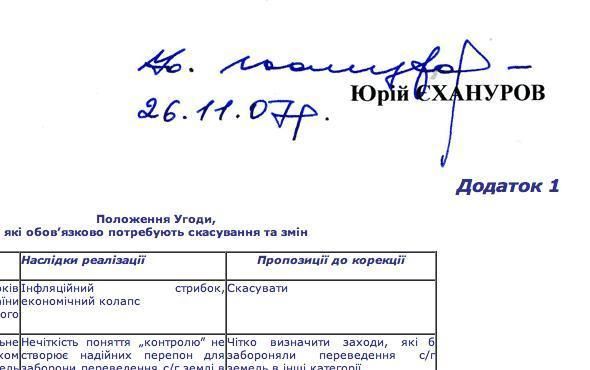 Ю.
26.11.07р.
Юрій ЄХАНУРОВ
Додаток 1
Положення Угоди,
які обов’язково потребують скасування та змін
Наслідки реалізації Пропозиції до корекції
Інфляційний стрибок, Скасувати
економічний колапс
Нечіткість поняття „контролю” не Чітко визначити заходи, які б
створює надійних перепон для забороняли переведення с/г
заборони переведення с/г землі в земель в інші категорії